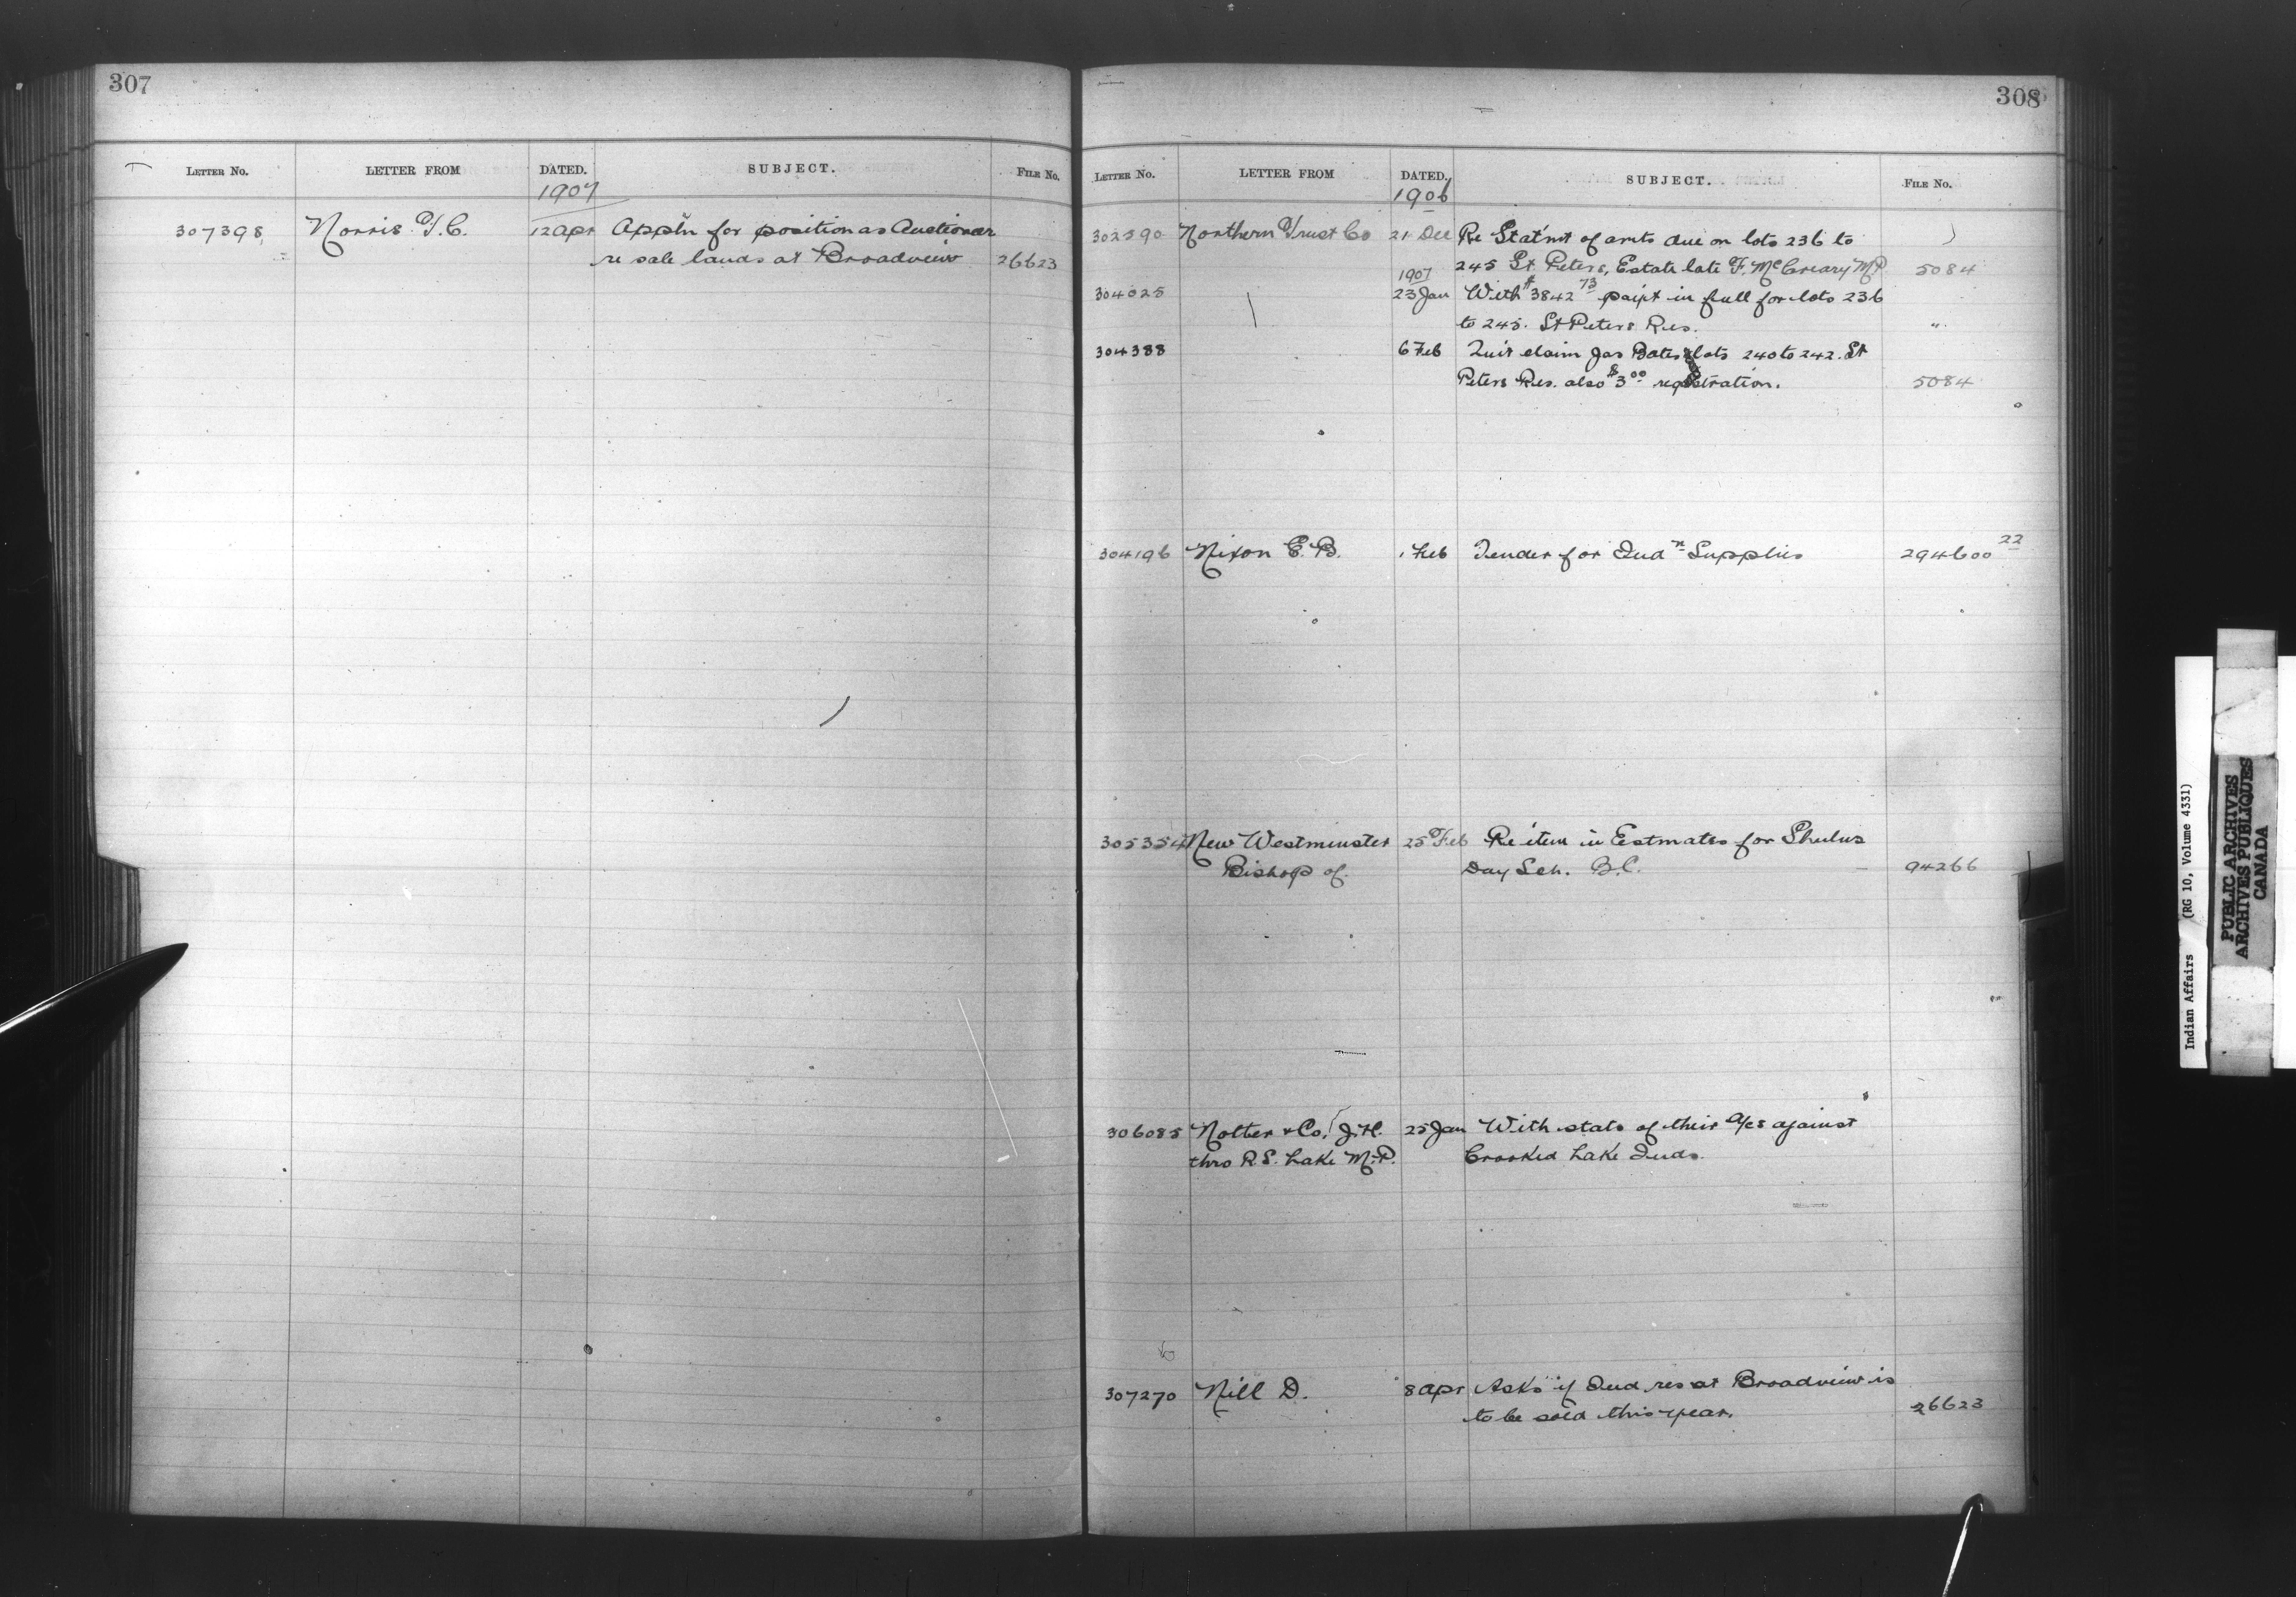 307
LETTER No. LETTER FROM DATED. SUBJECT. FILE No.
1907
307398 Norris T.C. 12 Apr Appln for position as Auctioneer
re sale lands at Broadview 26623
308
LETTER No. LETTER FROM DATED. SUBJECT. FILE No.
1906
302590 Northern Trust Co 21 Dec Re Stat'mt of amts due on lots 236 to
245 St Peters, Estate late F. McCreary M.P. 5084
1907
304025 23 Jan With $3842 73 paym't in full for lots 236
to 245. St Peters Res. "
304388 6 Feb Quit claim Jas Bates lots 240 to 242. St
Peters Res. also $3 00 registration. 5084
304196 Nixon E. B. 1 Feb Tender for Ind n Supplies 294600 22
305354 New Westminster 25 Feb Re item in Estmates for Shulus
Bishop of. Day Sch. B.C. 94266
306085 Nolter & Co, J.H. 25 Jan With stats of their a/cs against
thro R.S. Lake M.P. Crooked Lake Inds.
307270 Nill D. 8 Apr Asks if Ind res at Broadview is
to be sold this year. 26623
Indian Affairs (RG 10, Volume 4331)
PUBLIC ARCHIVES
ARCHIVES PUBLIQUES
CANADA